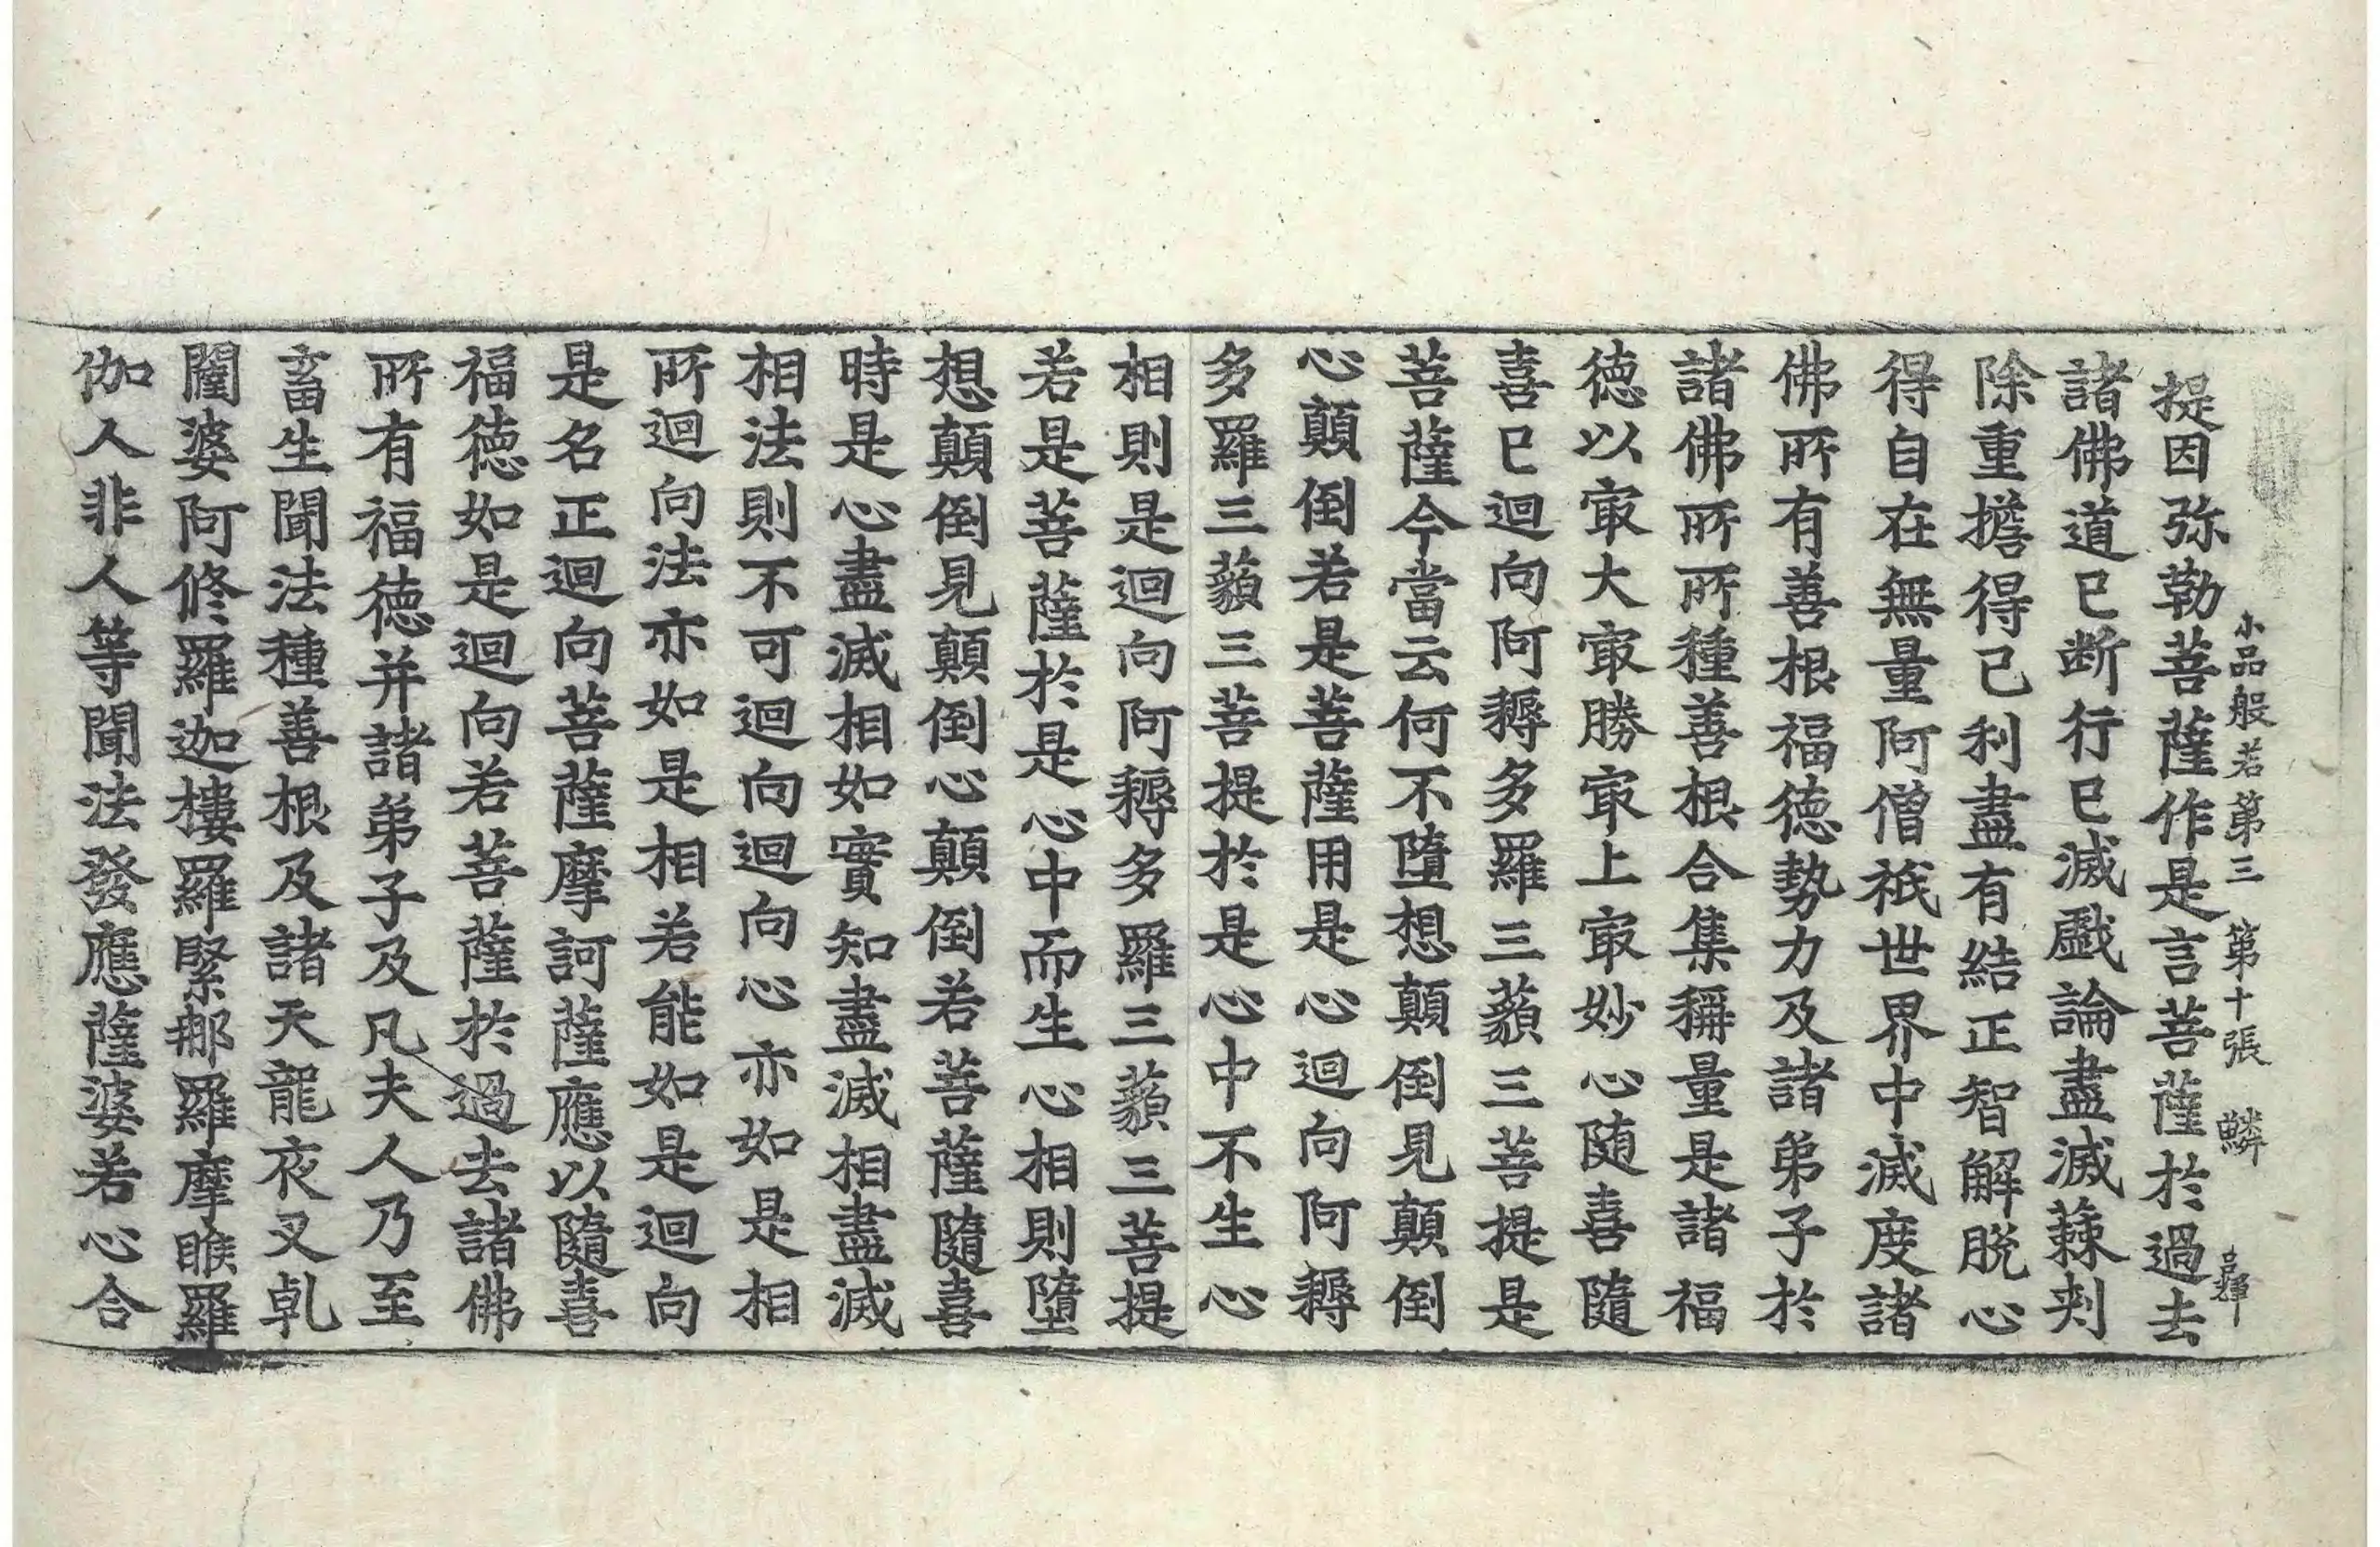 小品般若第三 第十張 鱗
提因弥勒菩薩作是言菩薩於過去
諸佛道已断行已滅戱論盡滅蕀刾
除重擔得已利盡有結正智解脱心
得自在無量阿僧祇世界中滅度諸
佛所有善根福徳勢力及諸弟子於
諸佛所所種善根合集稱量是諸福
徳以㝡大㝡勝㝡上㝡妙心随喜隨
喜已迴向阿耨多羅三藐三菩提是
菩薩今當云何不墮想顛倒見顛倒
心顛倒若是菩薩用是心迴向阿耨
多羅三藐三菩提於是心中不生心
相則是迴向阿耨多羅三藐三菩提
若是菩薩於是心中而生心相則墮
想顛倒見顛倒心顛倒若菩薩隨喜
時是心盡滅相如實知盡滅相盡滅
相法則不可迴向迴向心亦如是相
所迴向法亦如是相若能如是迴向
是名正迴向菩薩摩訶薩應以隨喜
福徳如是迴向若菩薩於過去諸佛
所有福徳并諸弟子及凡夫人乃至
畜生聞法種善根及諸天龍夜叉乹
闥婆阿修羅迦樓羅緊那羅摩睺羅
伽人非人等聞法發應薩婆若心合